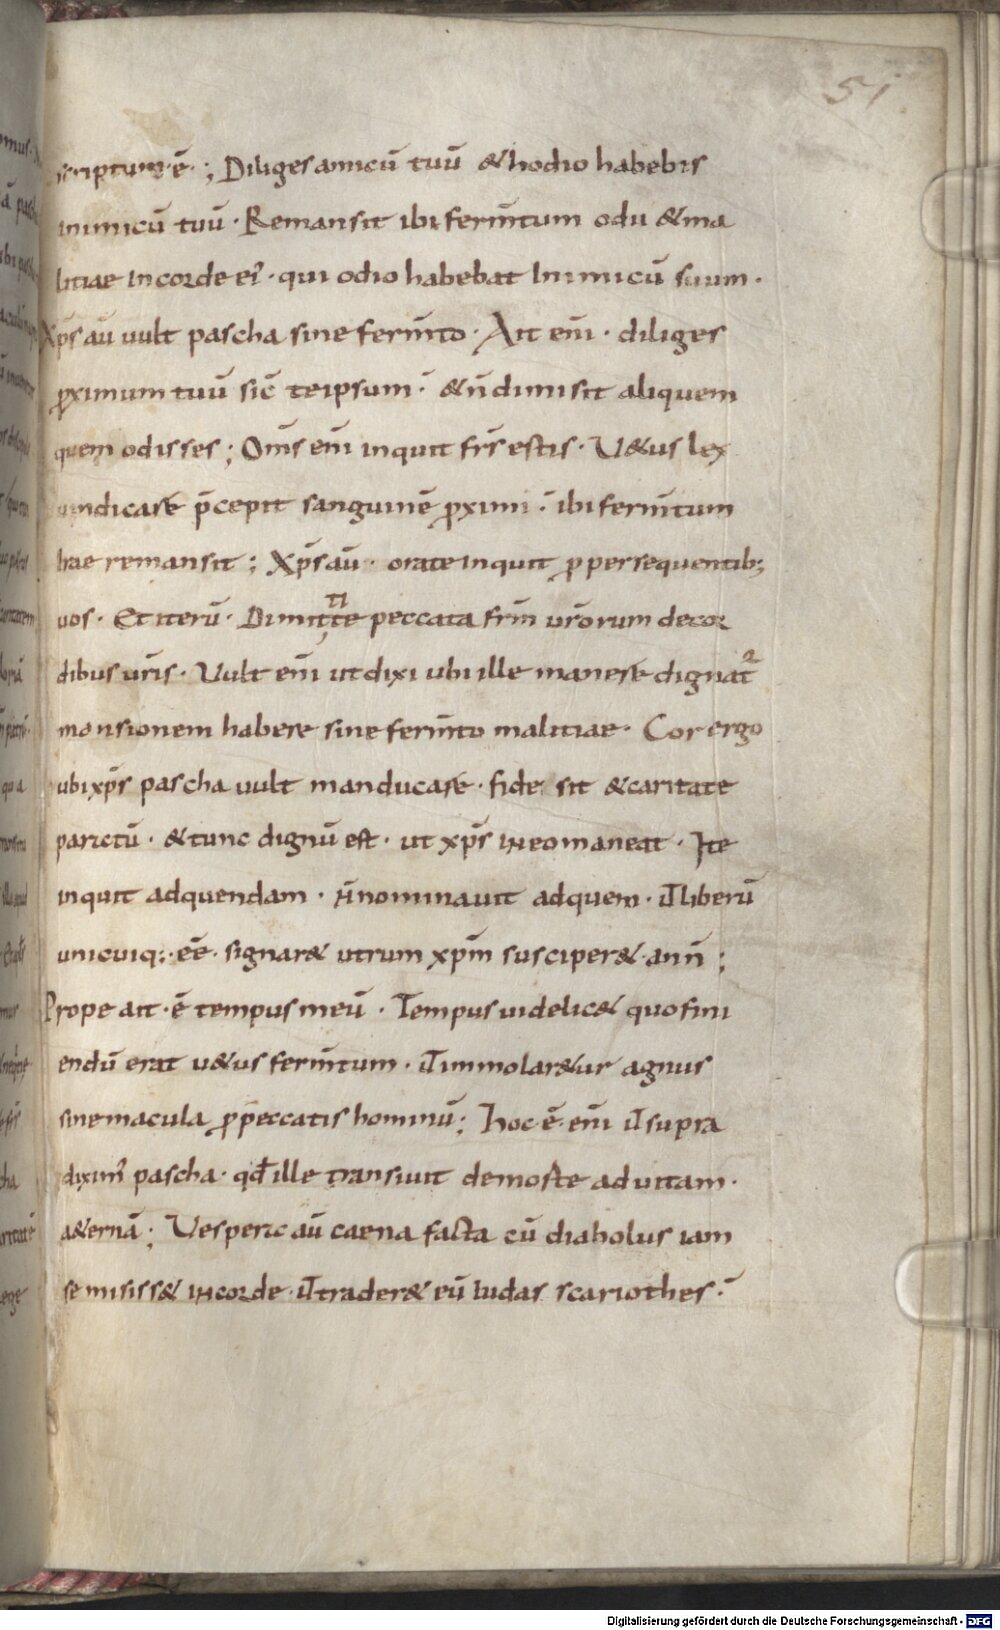 51
scriptum·ē·; Diliges amicū tuū & hodio habebis
inimicū tuū· Remansit ibi ferm̄tum odii & ma
litiae in corde ei᾽· qui odio habebat inimicū suum·
Xp̄s aū uult pascha sine ferm̄to· Ait eni̅· diliges
ꝓximum tuū sic̄ teipsum·̄ & n̄ dimisit aliquem
quem odisses; Om̄s eni̅ inquit fr̄s estis· U&us lex
uindicare p̄cepit sanguinē ꝓximi·̄ ibi ferm̄tum
irae remansit; Xp̄s aū· orate inquit ꝓ persequentib;
uos· Et iterū· Dimittite peccata fr̄m ur̄orum de cor
dibus ur̄is· Uult eni̅ ut dixi ubi ille manere dignat᷑
mansionem habere sine ferm̄to malitiae· Cor ergo
ubi xp̄s pascha uult manducare· fide sit & caritate
parictū· & tunc dignū est· ut xp̄s in eo maneat· Ite
inquit ad quendam· n̄ nominauit ad quem· ut̄ liberū
unicuiq;· ēē· signar& utrum xp̄m susciper& an n̄;
Prope ait·ē tempus meū· Tempus uidelic& quo fini
endū erat u&us ferm̄tum· ut̄ immolar&ur agnus
sine macula ꝓ peccatis hominū; Hoc·ē· eni̅ ut̄ supra
dixim᾽ pascha· qd̄ ille transiuit de morte ad uitam·
a&ernā; Uesperic aū caena facta cū diabolus iam
se misiss& in corde· ut̄ trader& eū iudas scariothes·̄
Digitalisierung gefördert durch die Deutsche Forschungsgemeinschaft - DFG